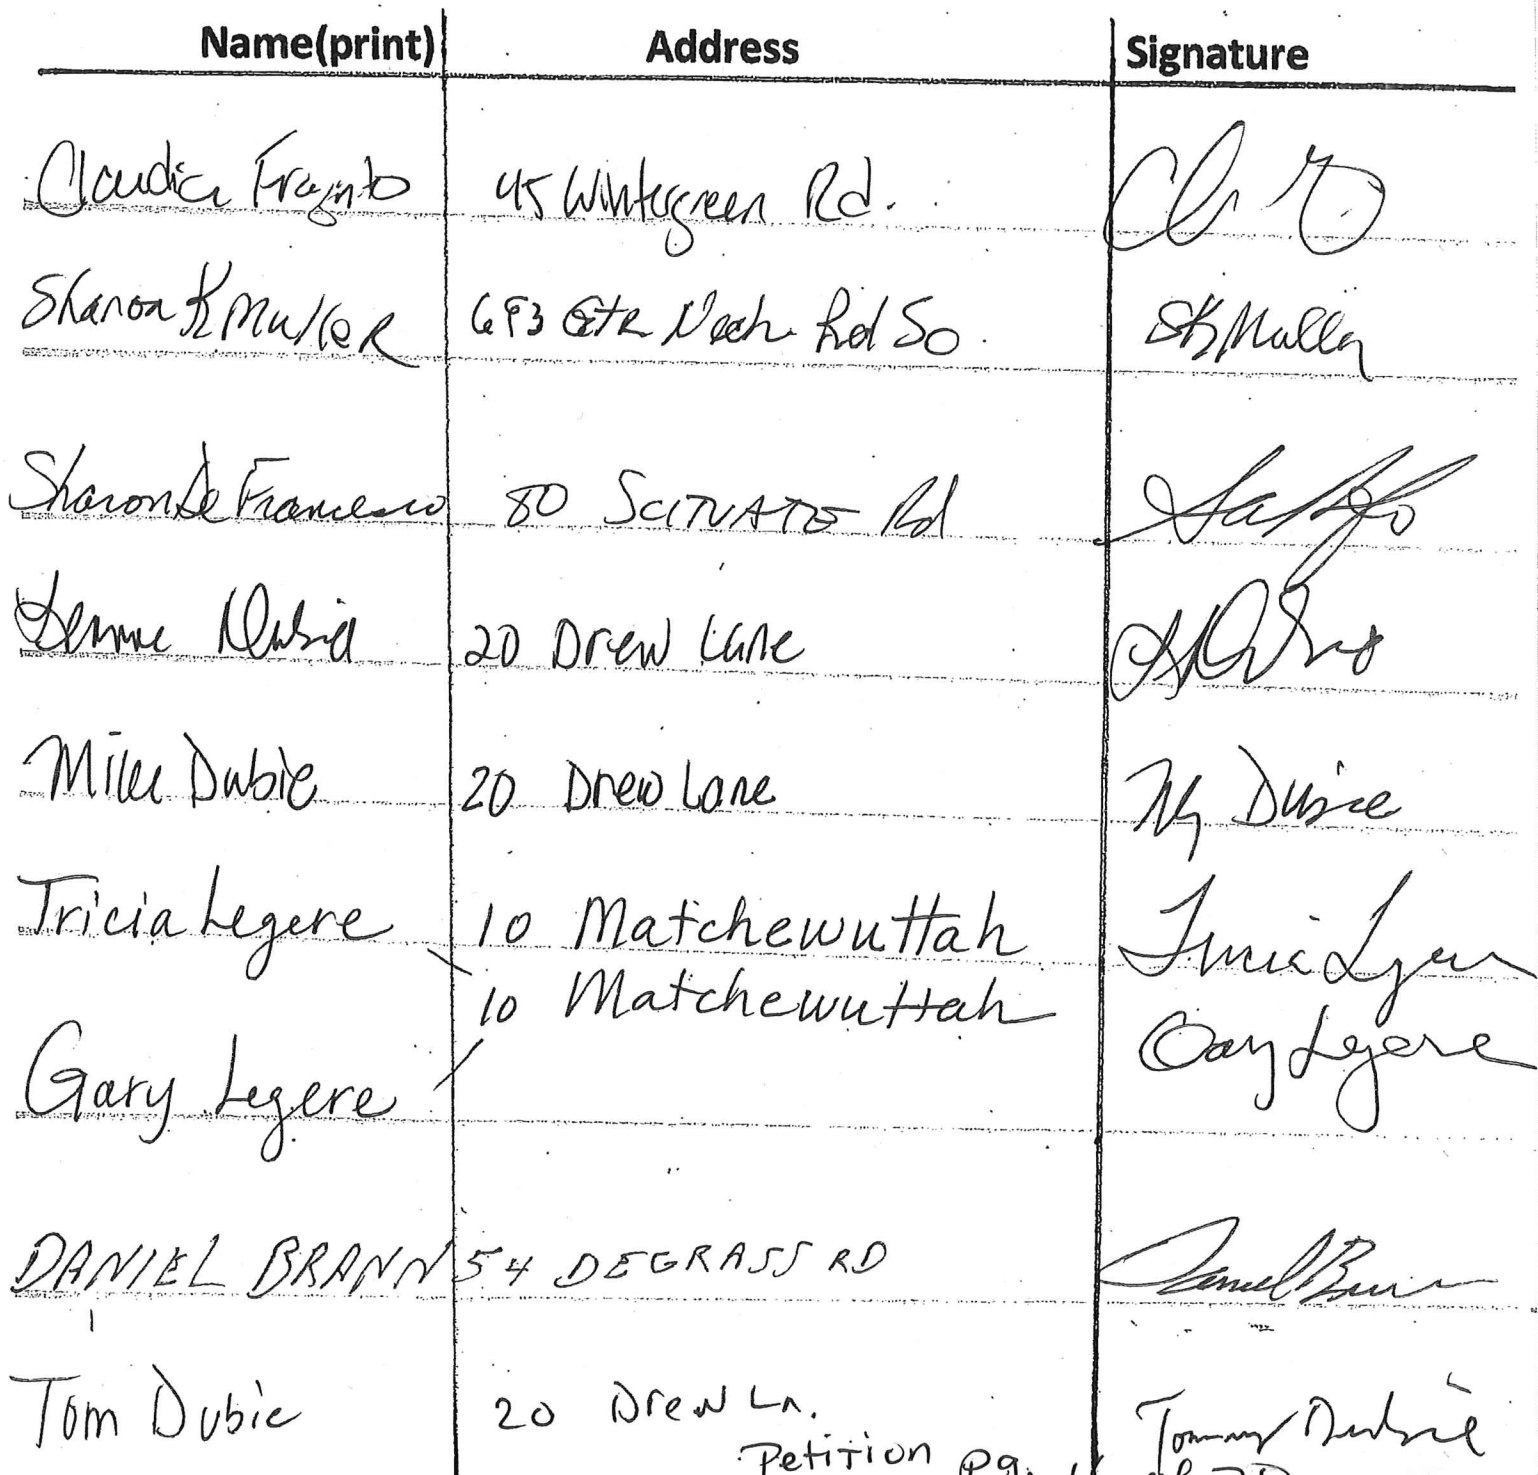 Name(print) Address Signature
Claudia 45 Wintergreen Rd.
Sharon K Muller 693 Gtr Neck Rd So SK Muller
Sharon De Francesco 80 SCITUATE Rd
20 Drew Lane
Mike Dubie 20 Drew Lane Dubie
Tricia Legere 10 Matchewuttah Tricia Legere
10 Matchewuttah
Gary Legere Gary Legere
DANIEL BRANN 54 DEGRASS RD Daniel Brann
Tom Dubie 20 Drew Ln. Tommy Dubie
Petition pg.